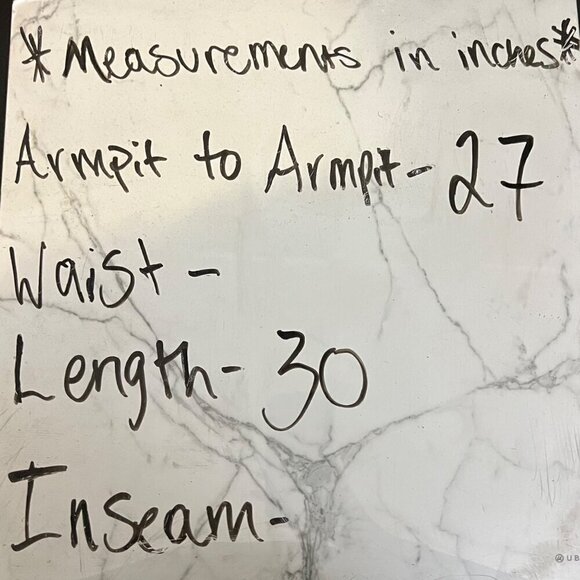 *Measurements in inches*
Armpit to Armpit- 27
Waist -
Length- 30
Inseam-
UB